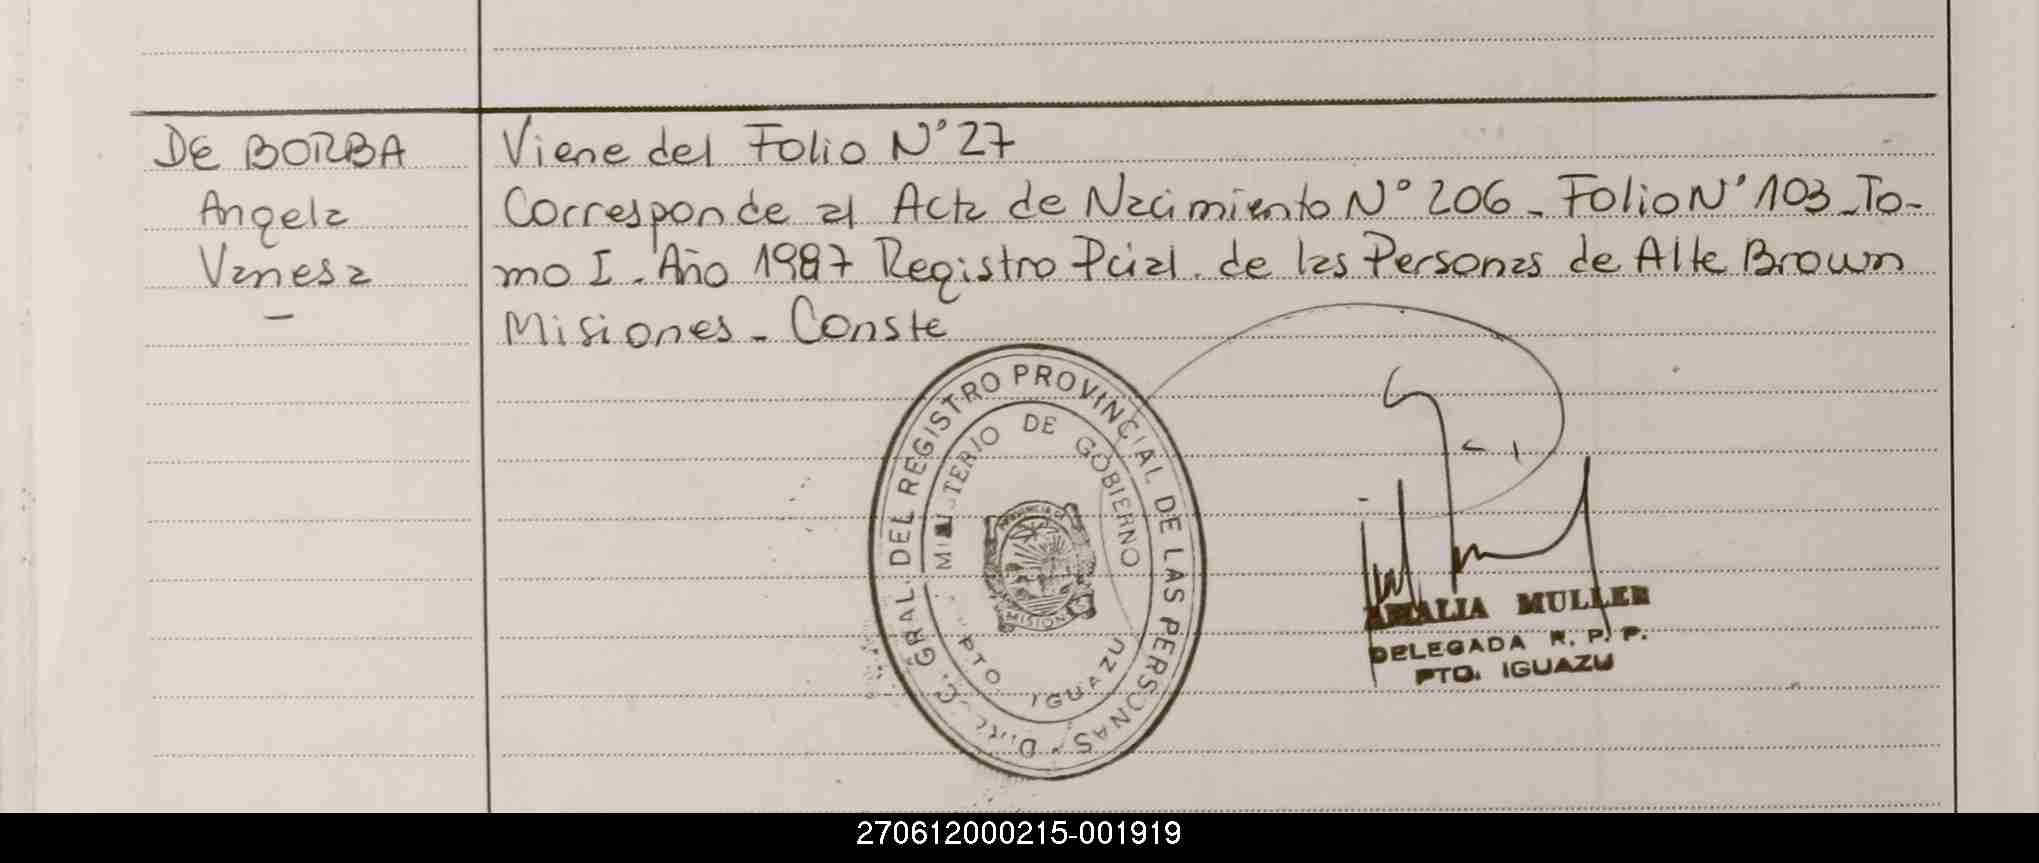 DE BORBA
Angela
Vanesa
Viene del Folio N° 27
Corresponde al Acta de Nacimiento N° 206 - Folio N° 103 - To-
mo I. Año 1987 Registro Pcial. de las Personas de Alte Brown
Misiones - Conste
GRAL. DEL REGISTRO PROVINCIAL DE LAS PERSONAS
MINISTERIO DE GOBIERNO
MISIONES
PTO IGUAZU
AMALIA MULLER
DELEGADA R. P. P.
PTO. IGUAZU
270612000215-001919